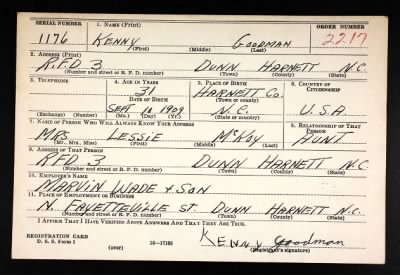 SERIAL NUMBER 1. NAME (Print) ORDER NUMBER
1176 KENNY GOODMAN 2217
(First) (Middle) (Last)
2. ADDRESS (Print)
R.F.D 3 DUNN HARNETT N.C.
(Number and street or R. F. D. number) (Town) (County) (State)
3. TELEPHONE 4. AGE IN YEARS 5. PLACE OF BIRTH 6. COUNTRY OF CITIZENSHIP
31 HARNETT CO.
DATE OF BIRTH (Town or county)
SEPT 10 1909 N.C. U.S.A.
(Exchange) (Number) (Mo.) (Day) (Yr.) (State or country)
7. NAME OF PERSON WHO WILL ALWAYS KNOW YOUR ADDRESS 8. RELATIONSHIP OF THAT PERSON
MRS LESSIE McKOY AUNT
(Mr., Mrs., Miss) (First) (Middle) (Last)
9. ADDRESS OF THAT PERSON
RFD 3 DUNN HARNETT N.C.
(Number and street or R. F. D. number) (Town) (County) (State)
10. EMPLOYER'S NAME
MARVIN WADE & SON
11. PLACE OF EMPLOYMENT OR BUSINESS
N. FAYETTEVILLE ST. DUNN HARNETT N.C.
(Number and street or R. F. D. number) (Town) (County) (State)
I AFFIRM THAT I HAVE VERIFIED ABOVE ANSWERS AND THAT THEY ARE TRUE.
REGISTRATION CARD
D. S. S. Form 1 (over) 16—17105 KENNY Goodman
(Registrant's signature)